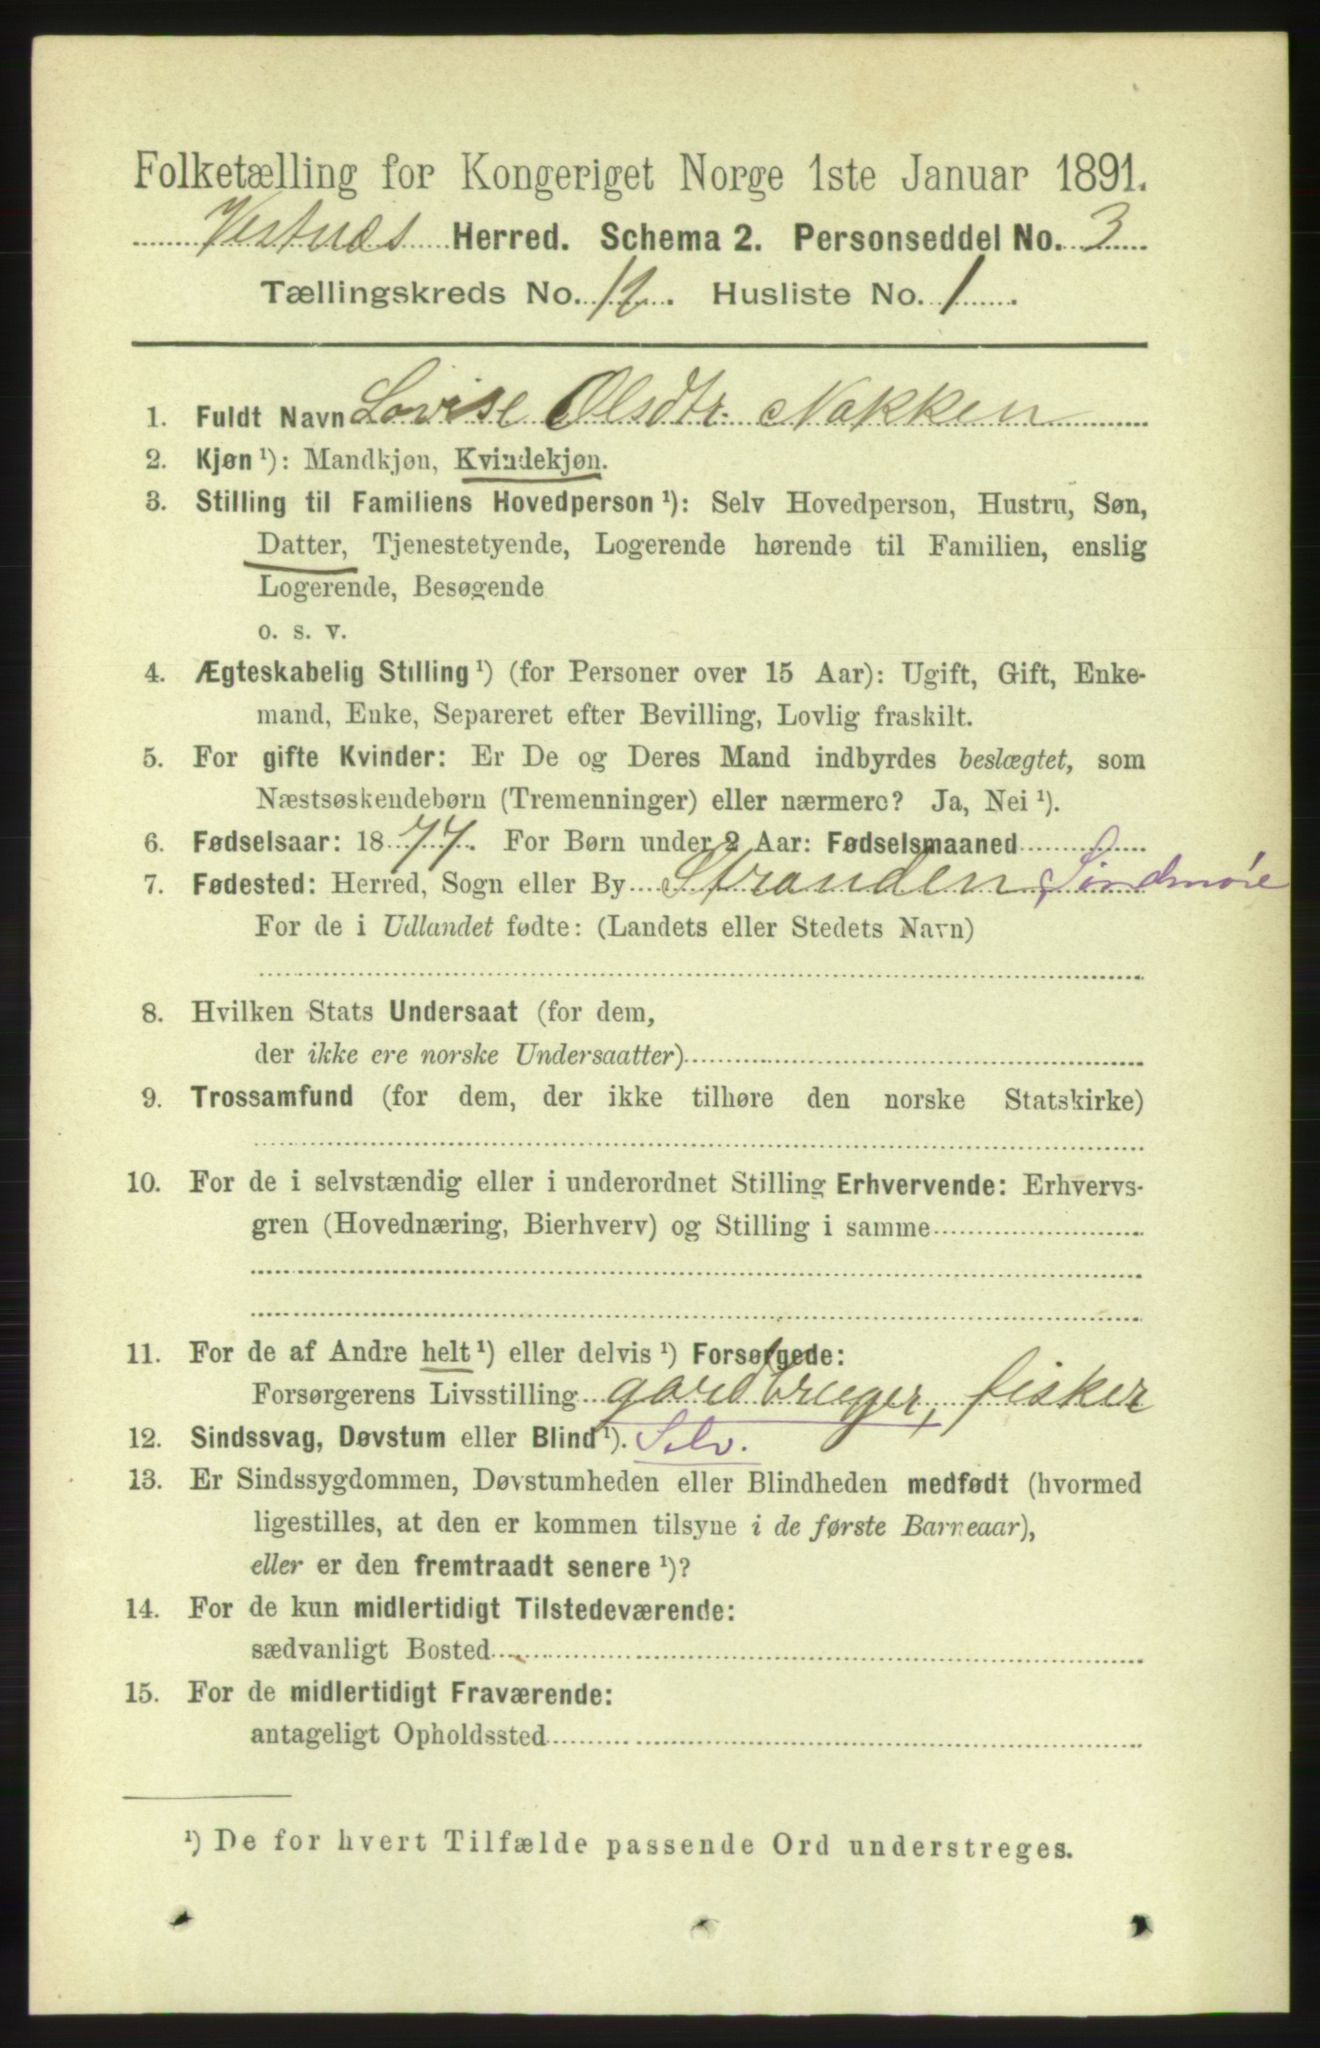 Folketælling for Kongeriget Norge 1ste Januar 1891.
Vestnæs Herred. Schema 2. Personseddel No. 3
Tællingskreds No. 12. Husliste No. 1
1. Fuldt Navn Lovise Olsdtr. Nakken
2. Kjøn ¹): Mandkjøn, Kvindekjøn.
3. Stilling til Familiens Hovedperson ¹): Selv Hovedperson, Hustru, Søn,
Datter, Tjenestetyende, Logerende hørende til Familien, enslig
Logerende, Besøgende
o. s. v.
4. Ægteskabelig Stilling ¹) (for Personer over 15 Aar): Ugift, Gift, Enke-
mand, Enke, Separeret efter Bevilling, Lovlig fraskilt.
5. For gifte Kvinder: Er De og Deres Mand indbyrdes beslægtet, som
Næstsøskendebørn (Tremenninger) eller nærmere? Ja, Nei ¹).
6. Fødselsaar: 1877. For Børn under 2 Aar: Fødselsmaaned
7. Fødested: Herred, Sogn eller By Stranden, Söndmöre
For de i Udlandet fødte: (Landets eller Stedets Navn)
8. Hvilken Stats Undersaat (for dem,
der ikke ere norske Undersaatter)
9. Trossamfund (for dem, der ikke tilhøre den norske Statskirke)
10. For de i selvstændig eller i underordnet Stilling Erhvervende: Erhvervs-
gren (Hovednæring, Bierhverv) og Stilling i samme
11. For de af Andre helt ¹) eller delvis ¹) Forsørgede:
Forsørgerens Livsstilling gardbruger, fisker
12. Sindssvag, Døvstum eller Blind ¹). Selv.
13. Er Sindssygdommen, Døvstumheden eller Blindheden medfødt (hvormed
ligestilles, at den er kommen tilsyne i de første Barneaar),
eller er den fremtraadt senere ¹)?
14. For de kun midlertidigt Tilstedeværende:
sædvanligt Bosted
15. For de midlertidigt Fraværende:
antageligt Opholdssted
¹) De for hvert Tilfælde passende Ord understreges.